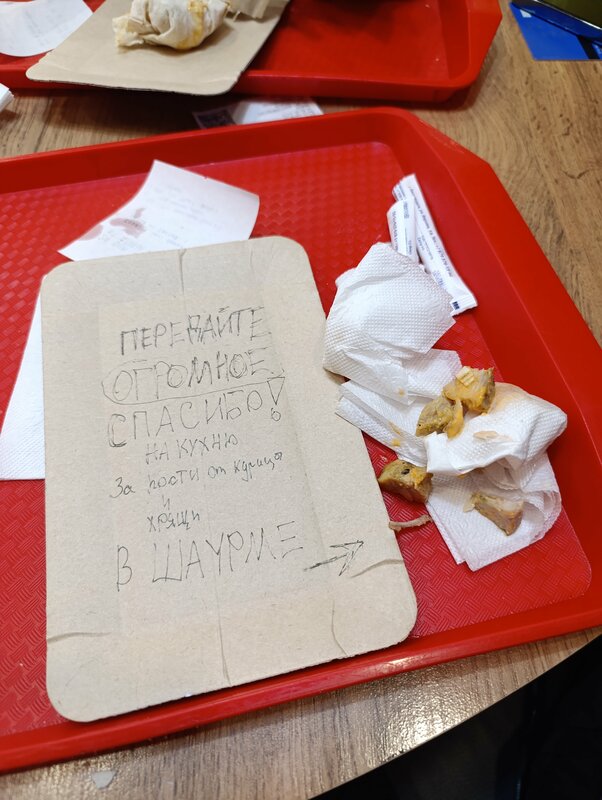 ПЕРЕДАЙТЕ
ОГРОМНОЕ
СПАСИБО!
НА КУХНЮ
За кости от курицы
и
хрящи
В ШАУРМЕ